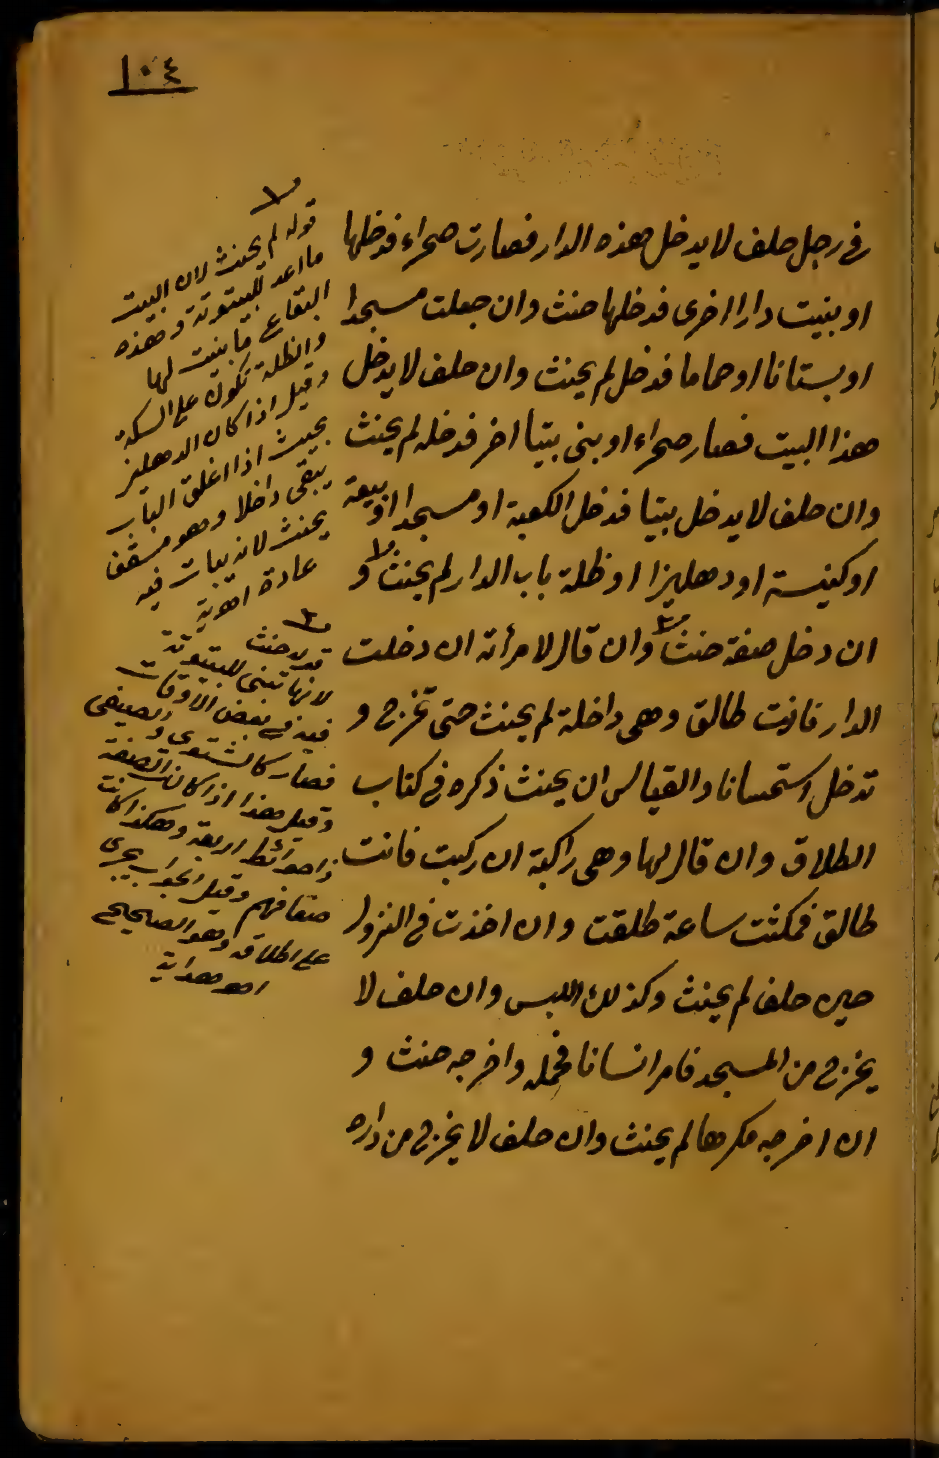 ١٠٤
في رجل حلف لا يدخل هذه الدار فصارت صحراء فدخلها
او بنيت دارا اخرى فدخلها حنث وان جعلت مسجدا
او بستانا او حماما فدخل لم يحنث وان حلف لا يدخل
هذا البيت فصار صحراء او بنى بيتا اخر فدخله لم يحنث
وان حلف لا يدخل بيتا فدخل الكعبة او مسجدا او بيعة
او كنيسة او دهليزا او ظلة باب الدار لم يحنث ١ و
ان دخل صفة حنث ٢ وان قال لامرأته ان دخلت
الدار فانت طالق وهي داخلة لم يحنث حتى تخرج و
تدخل استحسانا والقياس ان يحنث ذكره في كتاب
الطلاق وان قال لها وهي راكبة ان ركبت فانت
طالق فمكثت ساعة طلقت وان اخذت في النزول
حين حلف لم يحنث وكذلك اللبس وان حلف لا
يخرج من المسجد فامر انسانا فحمله واخرجه حنث و
ان اخرجه مكرها لم يحنث وان حلف لا يخرج من داره
١
قوله لم يحنث لان البيت
ما اعد للبيتوتة وهذه
البقاع ما بنيت لها
والظلة تكون على السكة
وقيل اذا كان الدهليز
بحيث اذا اغلق الباب
يبقى داخلا وهو مسقف
يحنث لانه يبات فيه
عادة اهـ
٢
قوله حنث
لانها تبنى للبيتوتة
فيه في بعض الاوقات
فصار كالشتوي والصيفي
وقيل هذا اذا كانت الصفة
ذا حوائط اربعة وهكذا كانت
صفافهم وقيل الجواب يجري
على اطلاقه وهو الصحيح
اهـ هداية